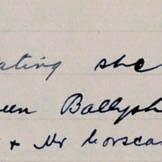 ating she
een Ballysh
& Mr Corsca